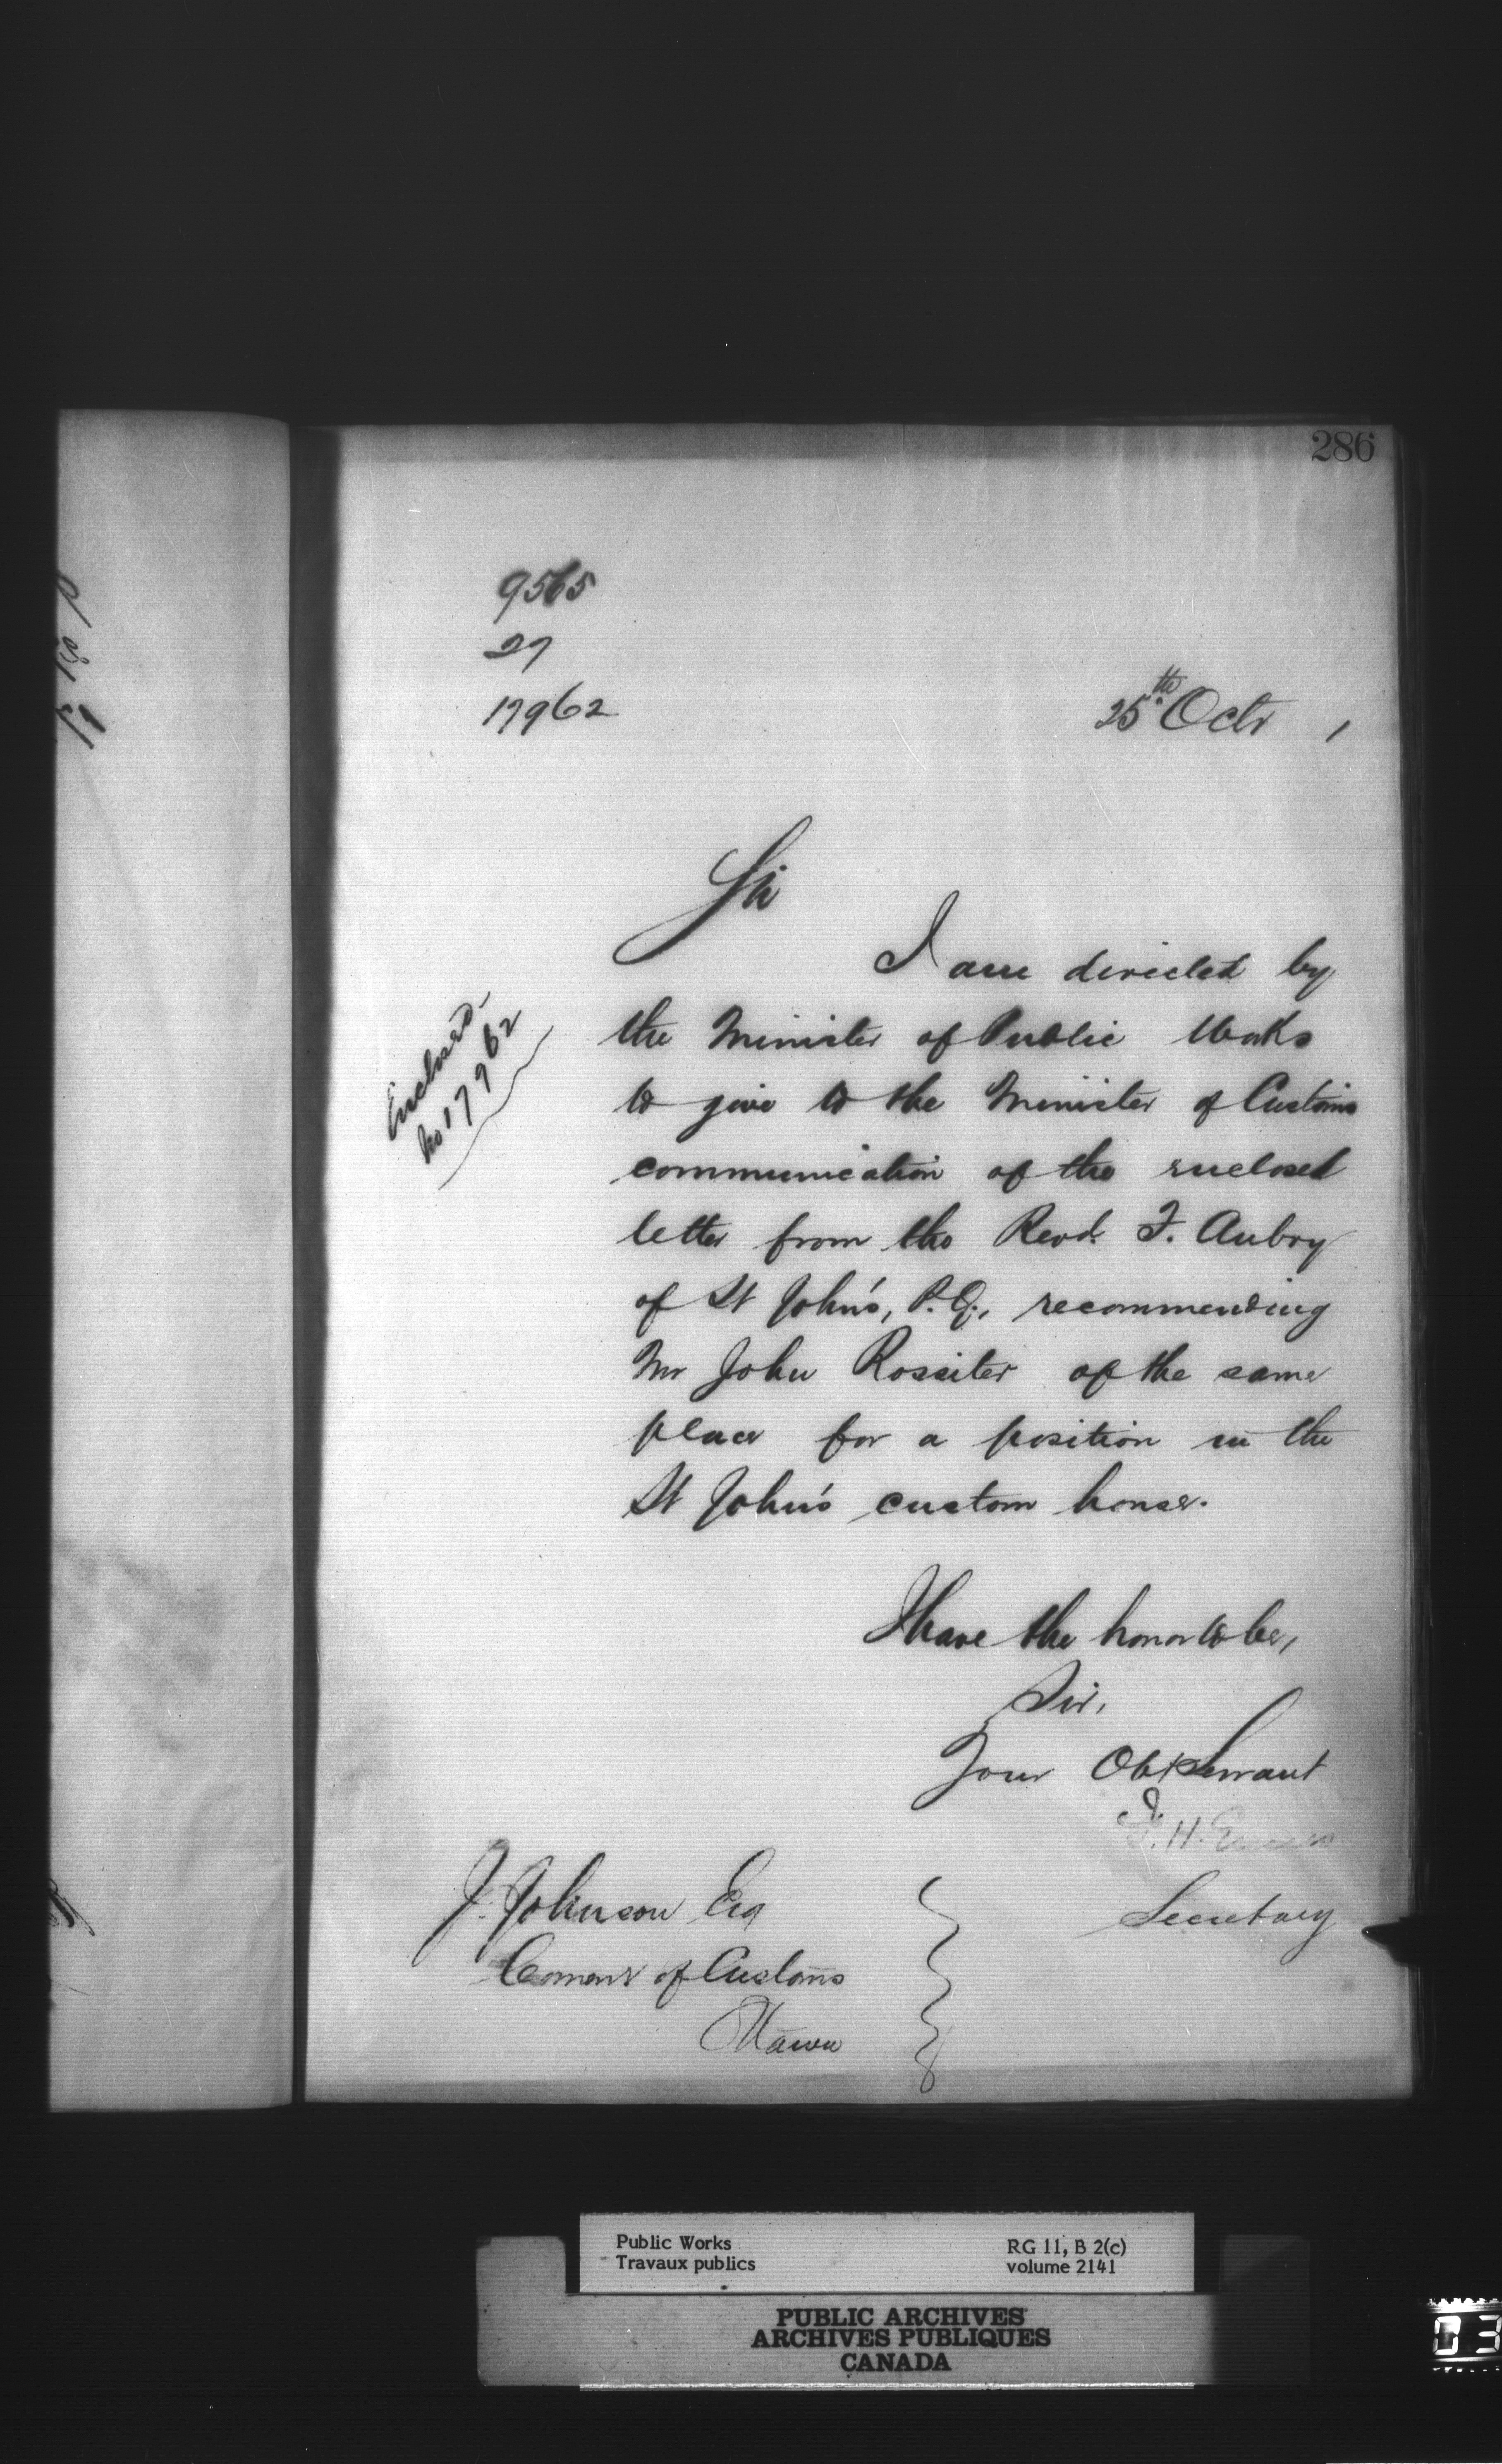 286
9565
27
17962
25th Octr 1
Sir
I am directed by
the Minister of Public Works
to give to the Minister of Customs
communication of the enclosed
letter from the Revd. F. Aubry
of St John's, P.Q., recommending
Mr John Rossiter of the same
place for a position in the
St John's custom house.
Enclosed
No 17962
I have the honor to be,
Sir,
Your Obt Servant
F. H. Ennis
Secretary
J. Johnson Esq
Commr of Customs
Ottawa
Public Works
Travaux publics
RG 11, B 2(c)
volume 2141
PUBLIC ARCHIVES
ARCHIVES PUBLIQUES
CANADA
03